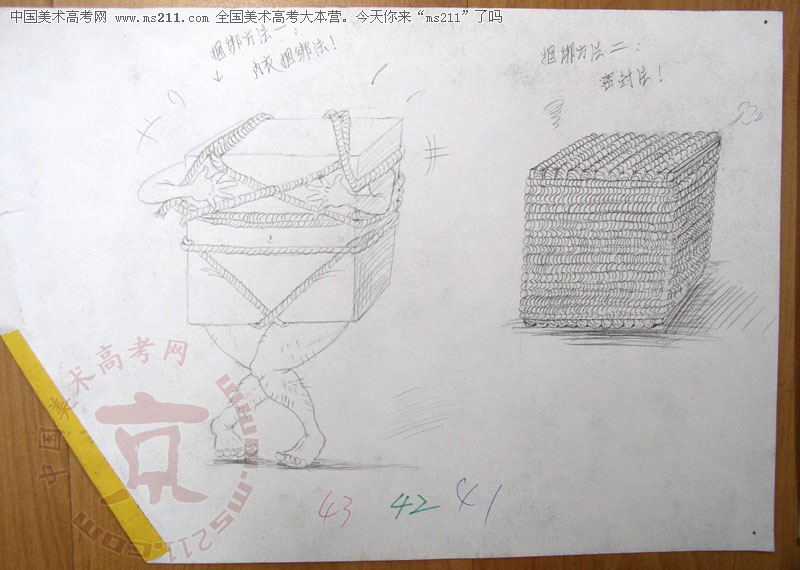 中国美术高考网 www.ms211.com 全国美术高考大本营。今天你来“ms211”了吗
捆绑方法一：
↓ 内衣捆绑法！
捆绑方法二：
密封法！
43 42 41
中国美术高考网
京
www.ms211.com